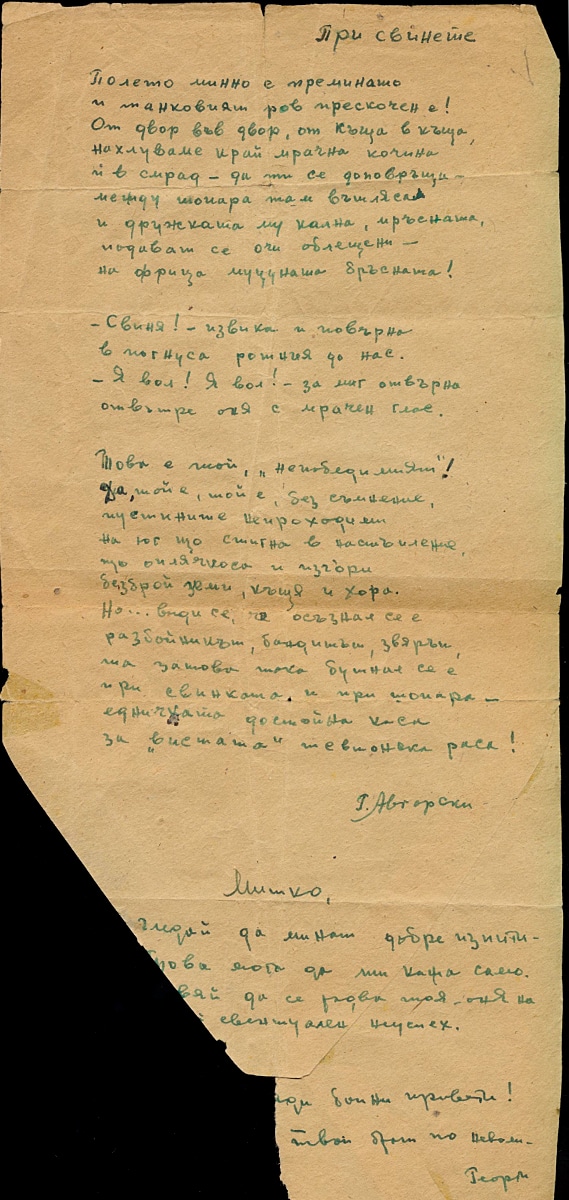 При свинете
Полето минно е преминато
и танковият ров прескочен е!
От двор във двор, от къща в къща,
нахлуваме край мрачна кочина
и в смрад – да ти се доповръща –
между шопара там въшляса
и дружката му кална, мръсната,
подават се очи облещени –
на фрица муцуната бръсната!
– Свиня! – извика и повърна
в погнуса ротния до нас.
– Я вол! Я вол! – за миг отвърна
отвътре оня с мрачен глас.
Това е той, „непобедимият"!
Да, той е, той е, без съмнение,
пустините непроходими
на юг що стигна в настъпление,
що оплячкоса и изгори
безброй земи, къщя и хора.
Но... види се, че осъзнал се е
разбойникът, бандитът, звярът,
та затова така бутнал се е
при свинката и при шопара –
едничката достойна каса
за „висшата" тевтонска раса!
Г. Авгорски
Митко,
гледай да минат добре изпити-
Това мога да ти кажа само.
да се радва тоя-оня на
евентуален неуспех.
бойни привети!
твой брат по неволи-
Георги